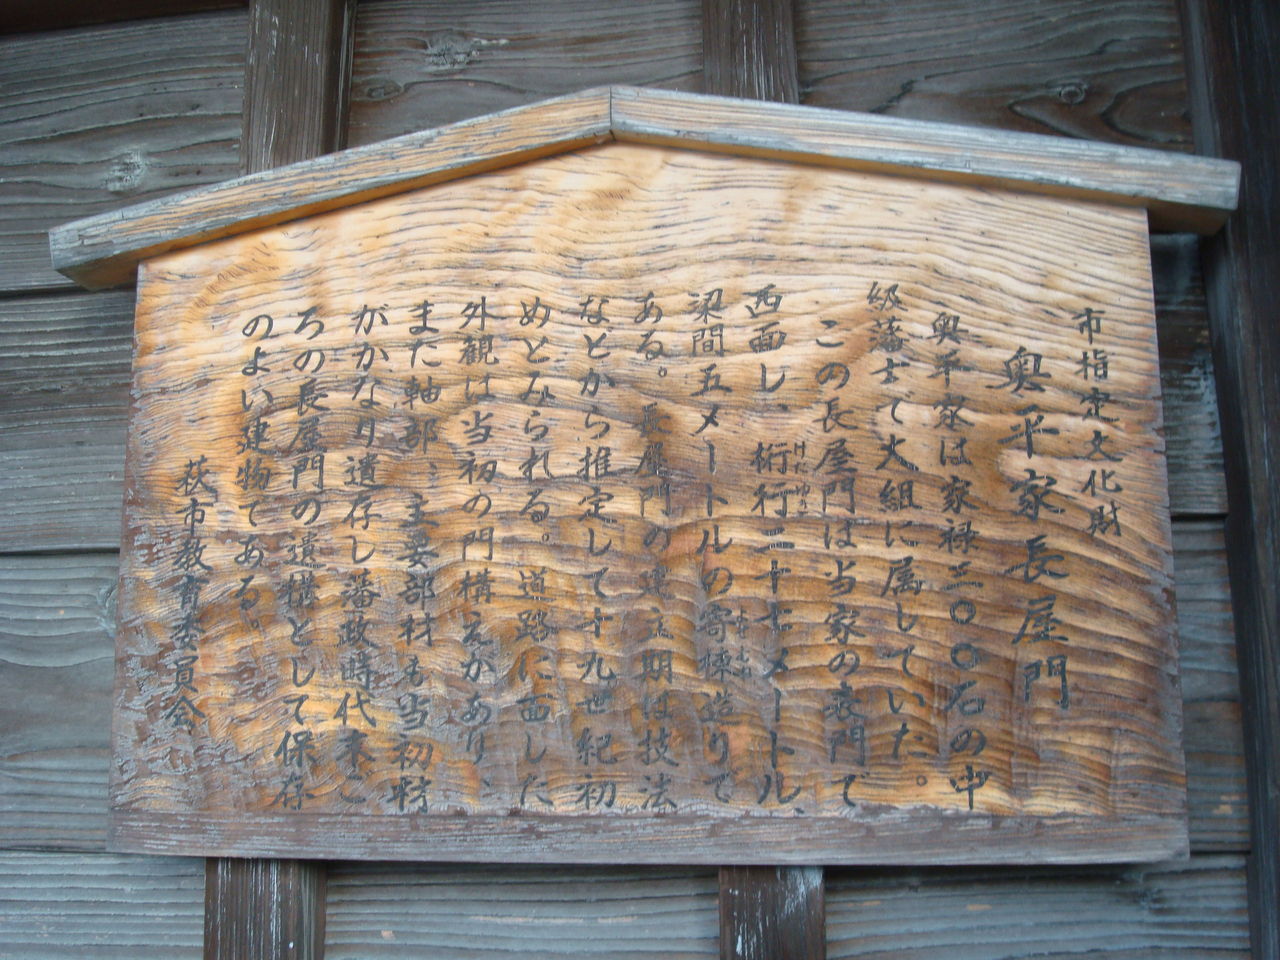 市指定文化財
奥平家長屋門
奥平家は家禄三〇〇石の中
級藩士で大組に属していた。
この長屋門は当家の表門で
西面し、桁行二十七メートル、
梁間五メートルの寄棟造りで
ある。長屋門の建立期は技法
などから推定して十九世紀初
めとみられる。道路に面した
外観は当初の門構えがあり、
また軸部、主要部材も当初材
がかなり遺存し藩政時代末ご
ろの長屋門の遺構として保存
のよい建物である。
萩市教育委員会